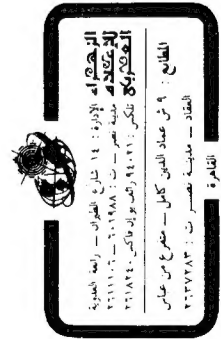 الزهراء
للإعلام
العربي
الإدارة : ١٤ شارع الطيران - رابعة العدوية
مدينة نصر - ت : ٦٠١٩٨٨ - ٢٦١١١٠٦
تلكس : ٩٤٠٢١ رائف يو إن فاكس : ٢٦١٨٢٤٠
المطابع : ٩ ش عماد الدين كامل - متفرع من عباس
العقاد - مدينة نصر ت : ٢٦٣٧٢٨٣
القاهرة